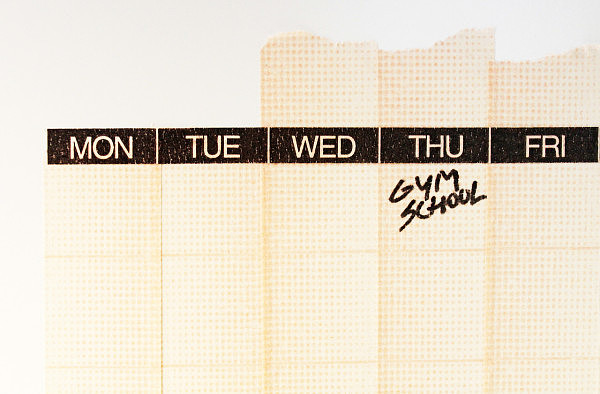 MON TUE WED THU FRI
GYM
SCHOOL